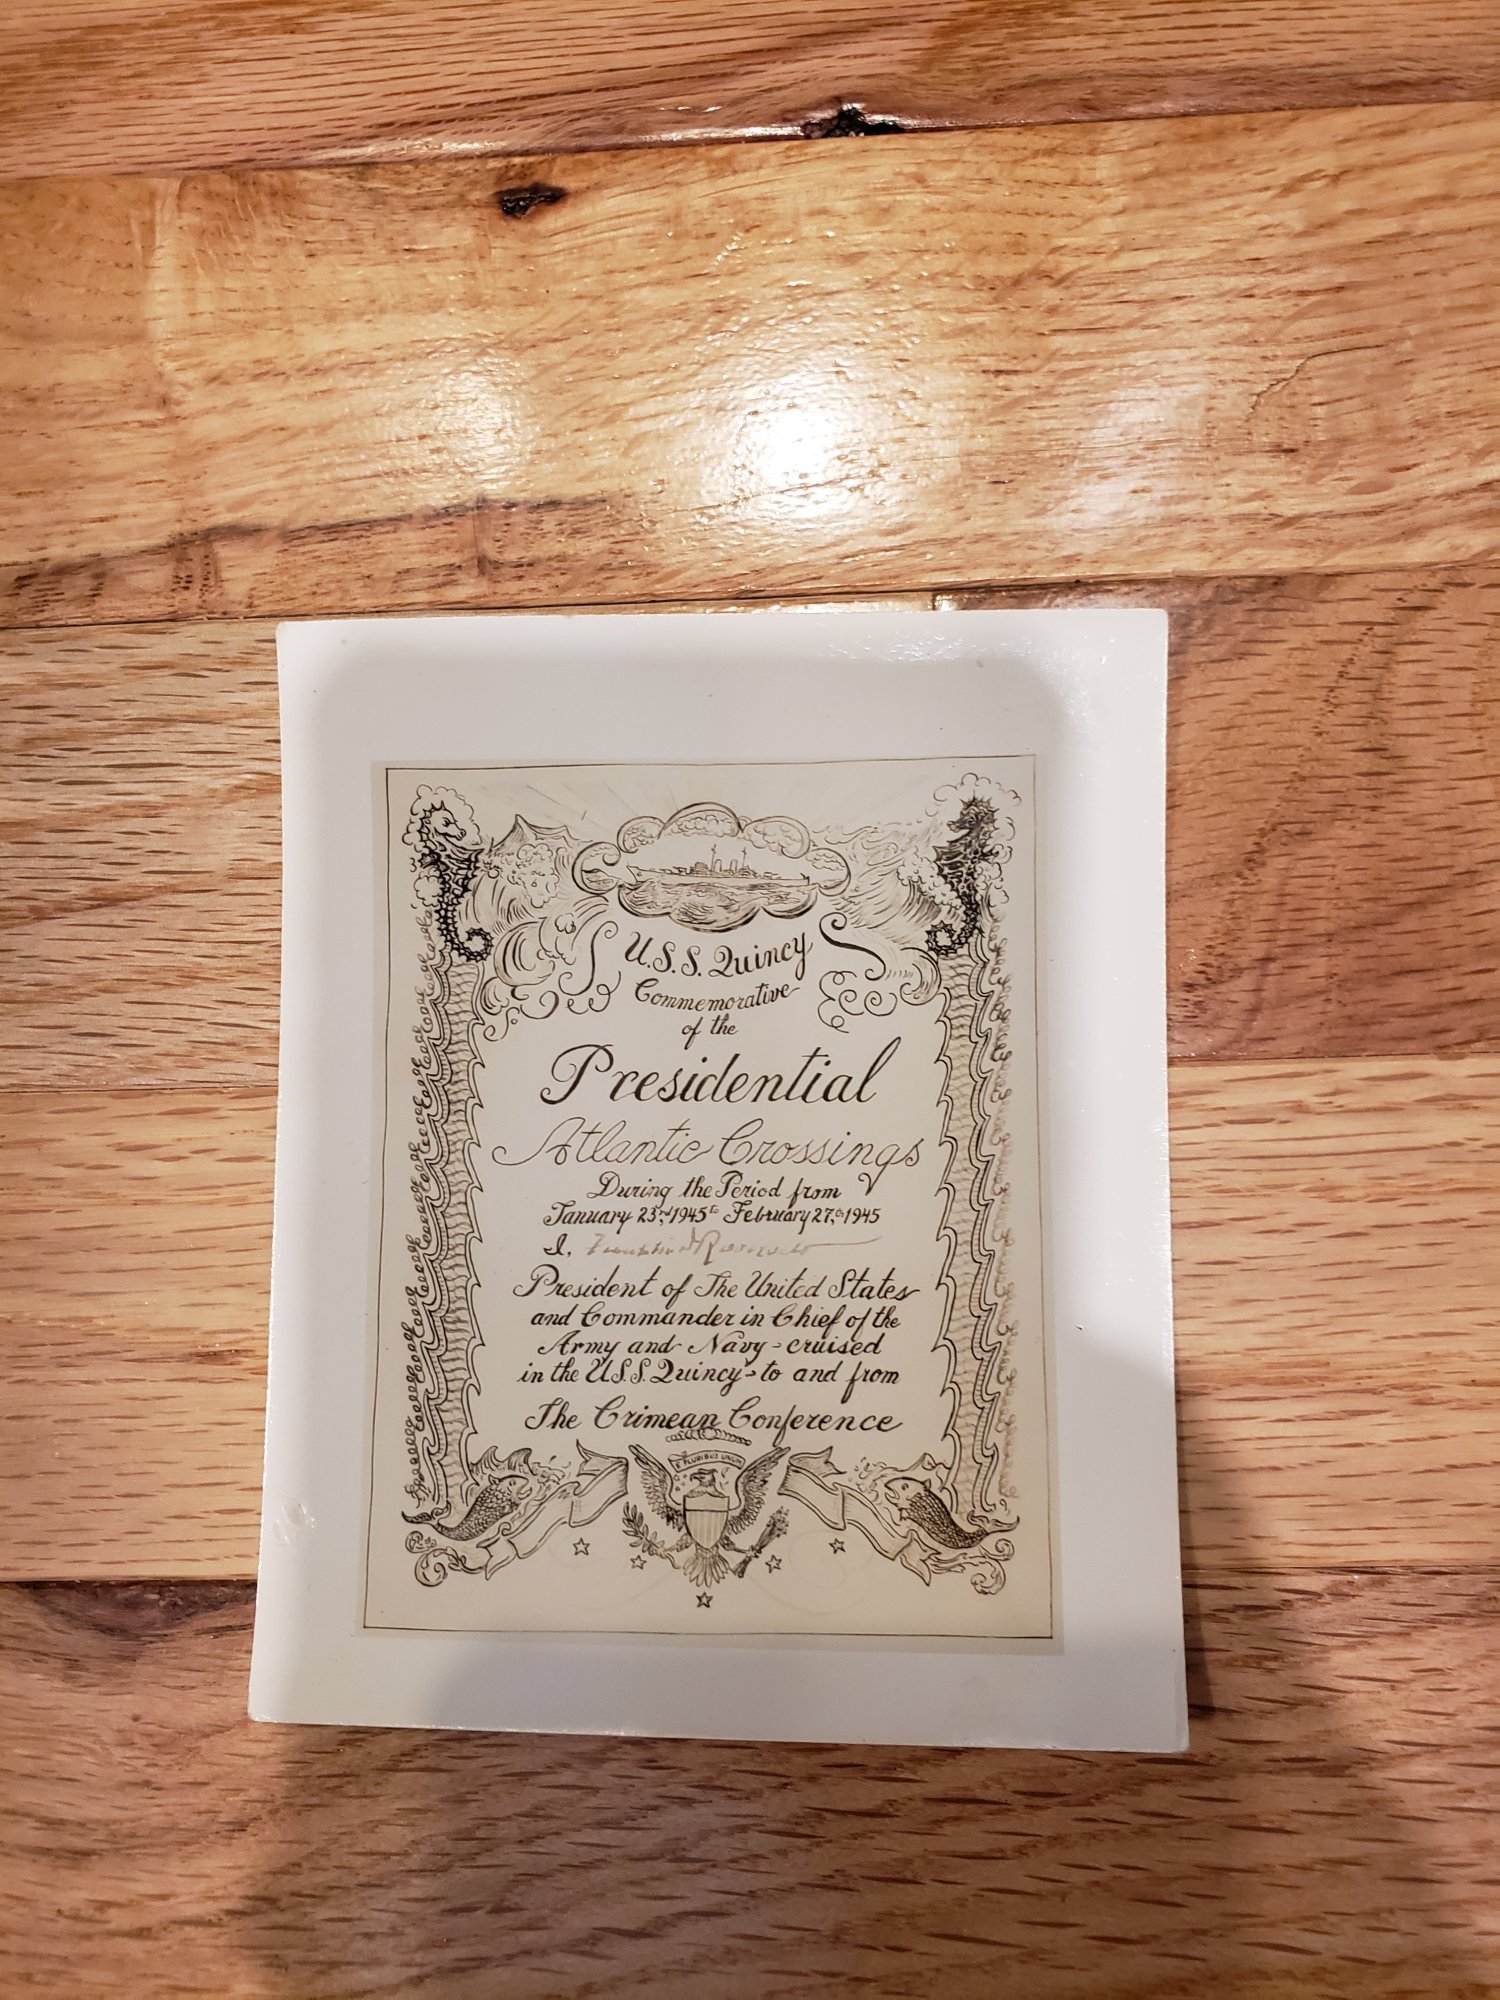 U.S.S. Quincy
Commemorative
of the
Presidential
Atlantic Crossings
During the Period from
January 23rd, 1945 to February 27,th 1945
I, Franklin D Roosevelt
President of The United States
and Commander in Chief of the
Army and Navy - cruised
in the U.S.S. Quincy - to and from
The Crimean Conference
E PLURIBUS UNUM